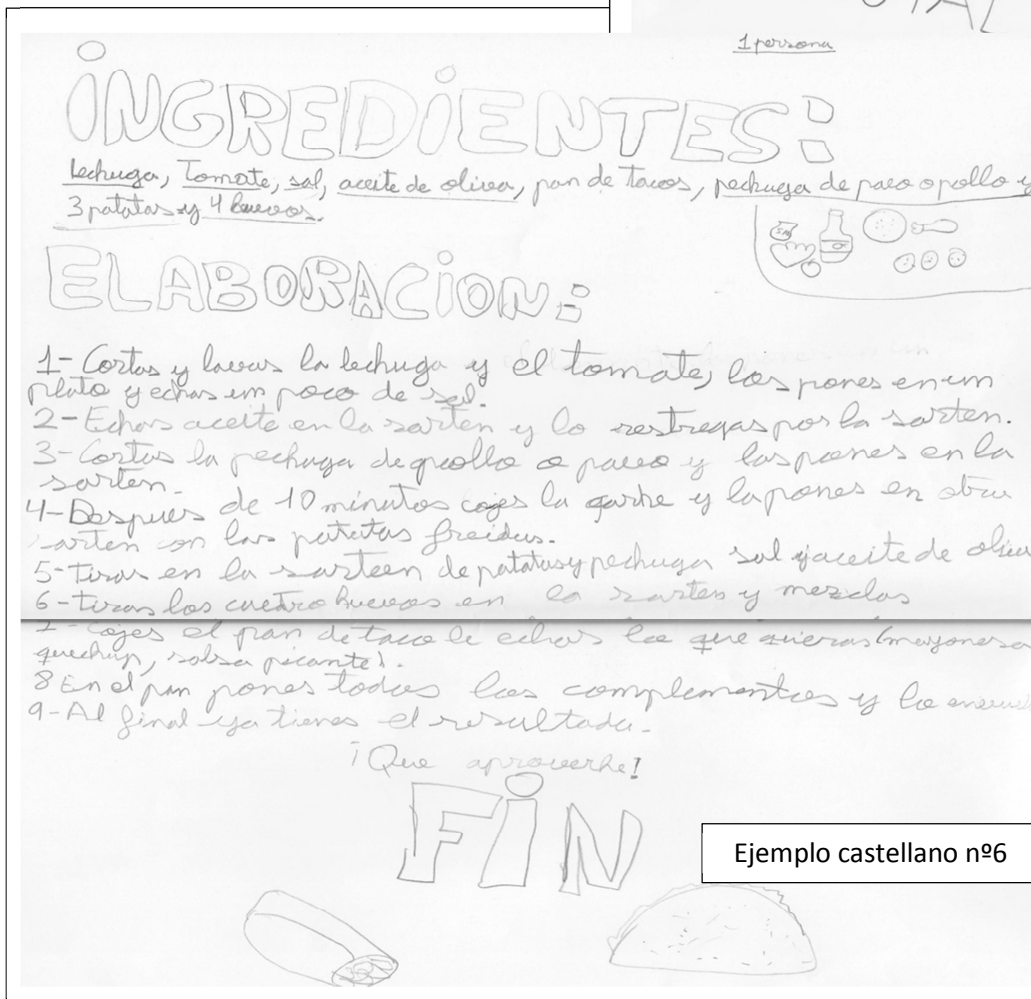 1 persona
INGREDIENTES:
lechuga, Tomate, sal, aceite de oliva, pan de tacos, pechuga de pavo o pollo y
3 patatas y 4 huevos.
SAL
ELABORACION:
1-Cortas y lavas la lechuga y el tomate, los pones en un
plato y echas un poco de sal.
2-Echas aceite en la sarten y lo restregas por la sarten.
3-Cortas la pechuga de pollo o pavo y las pones en la
sarten.
4-Despues de 10 minutos cojes la carne y la pones en otra
sarten con las patatas freidas.
5-tiras en la sarteen de patatas y pechuga sal y aceite de oliva
6-tiras los cuatro huevos en la sarten y mezclas
cojes el pan de taco le echas lo que quieras (mayonesa
quechup, salsa picante).
8 En el pan pones todos los complementos y lo
9-Al final ya tienes el resultado.
¡Que aproveche!
FIN
Ejemplo castellano nº6